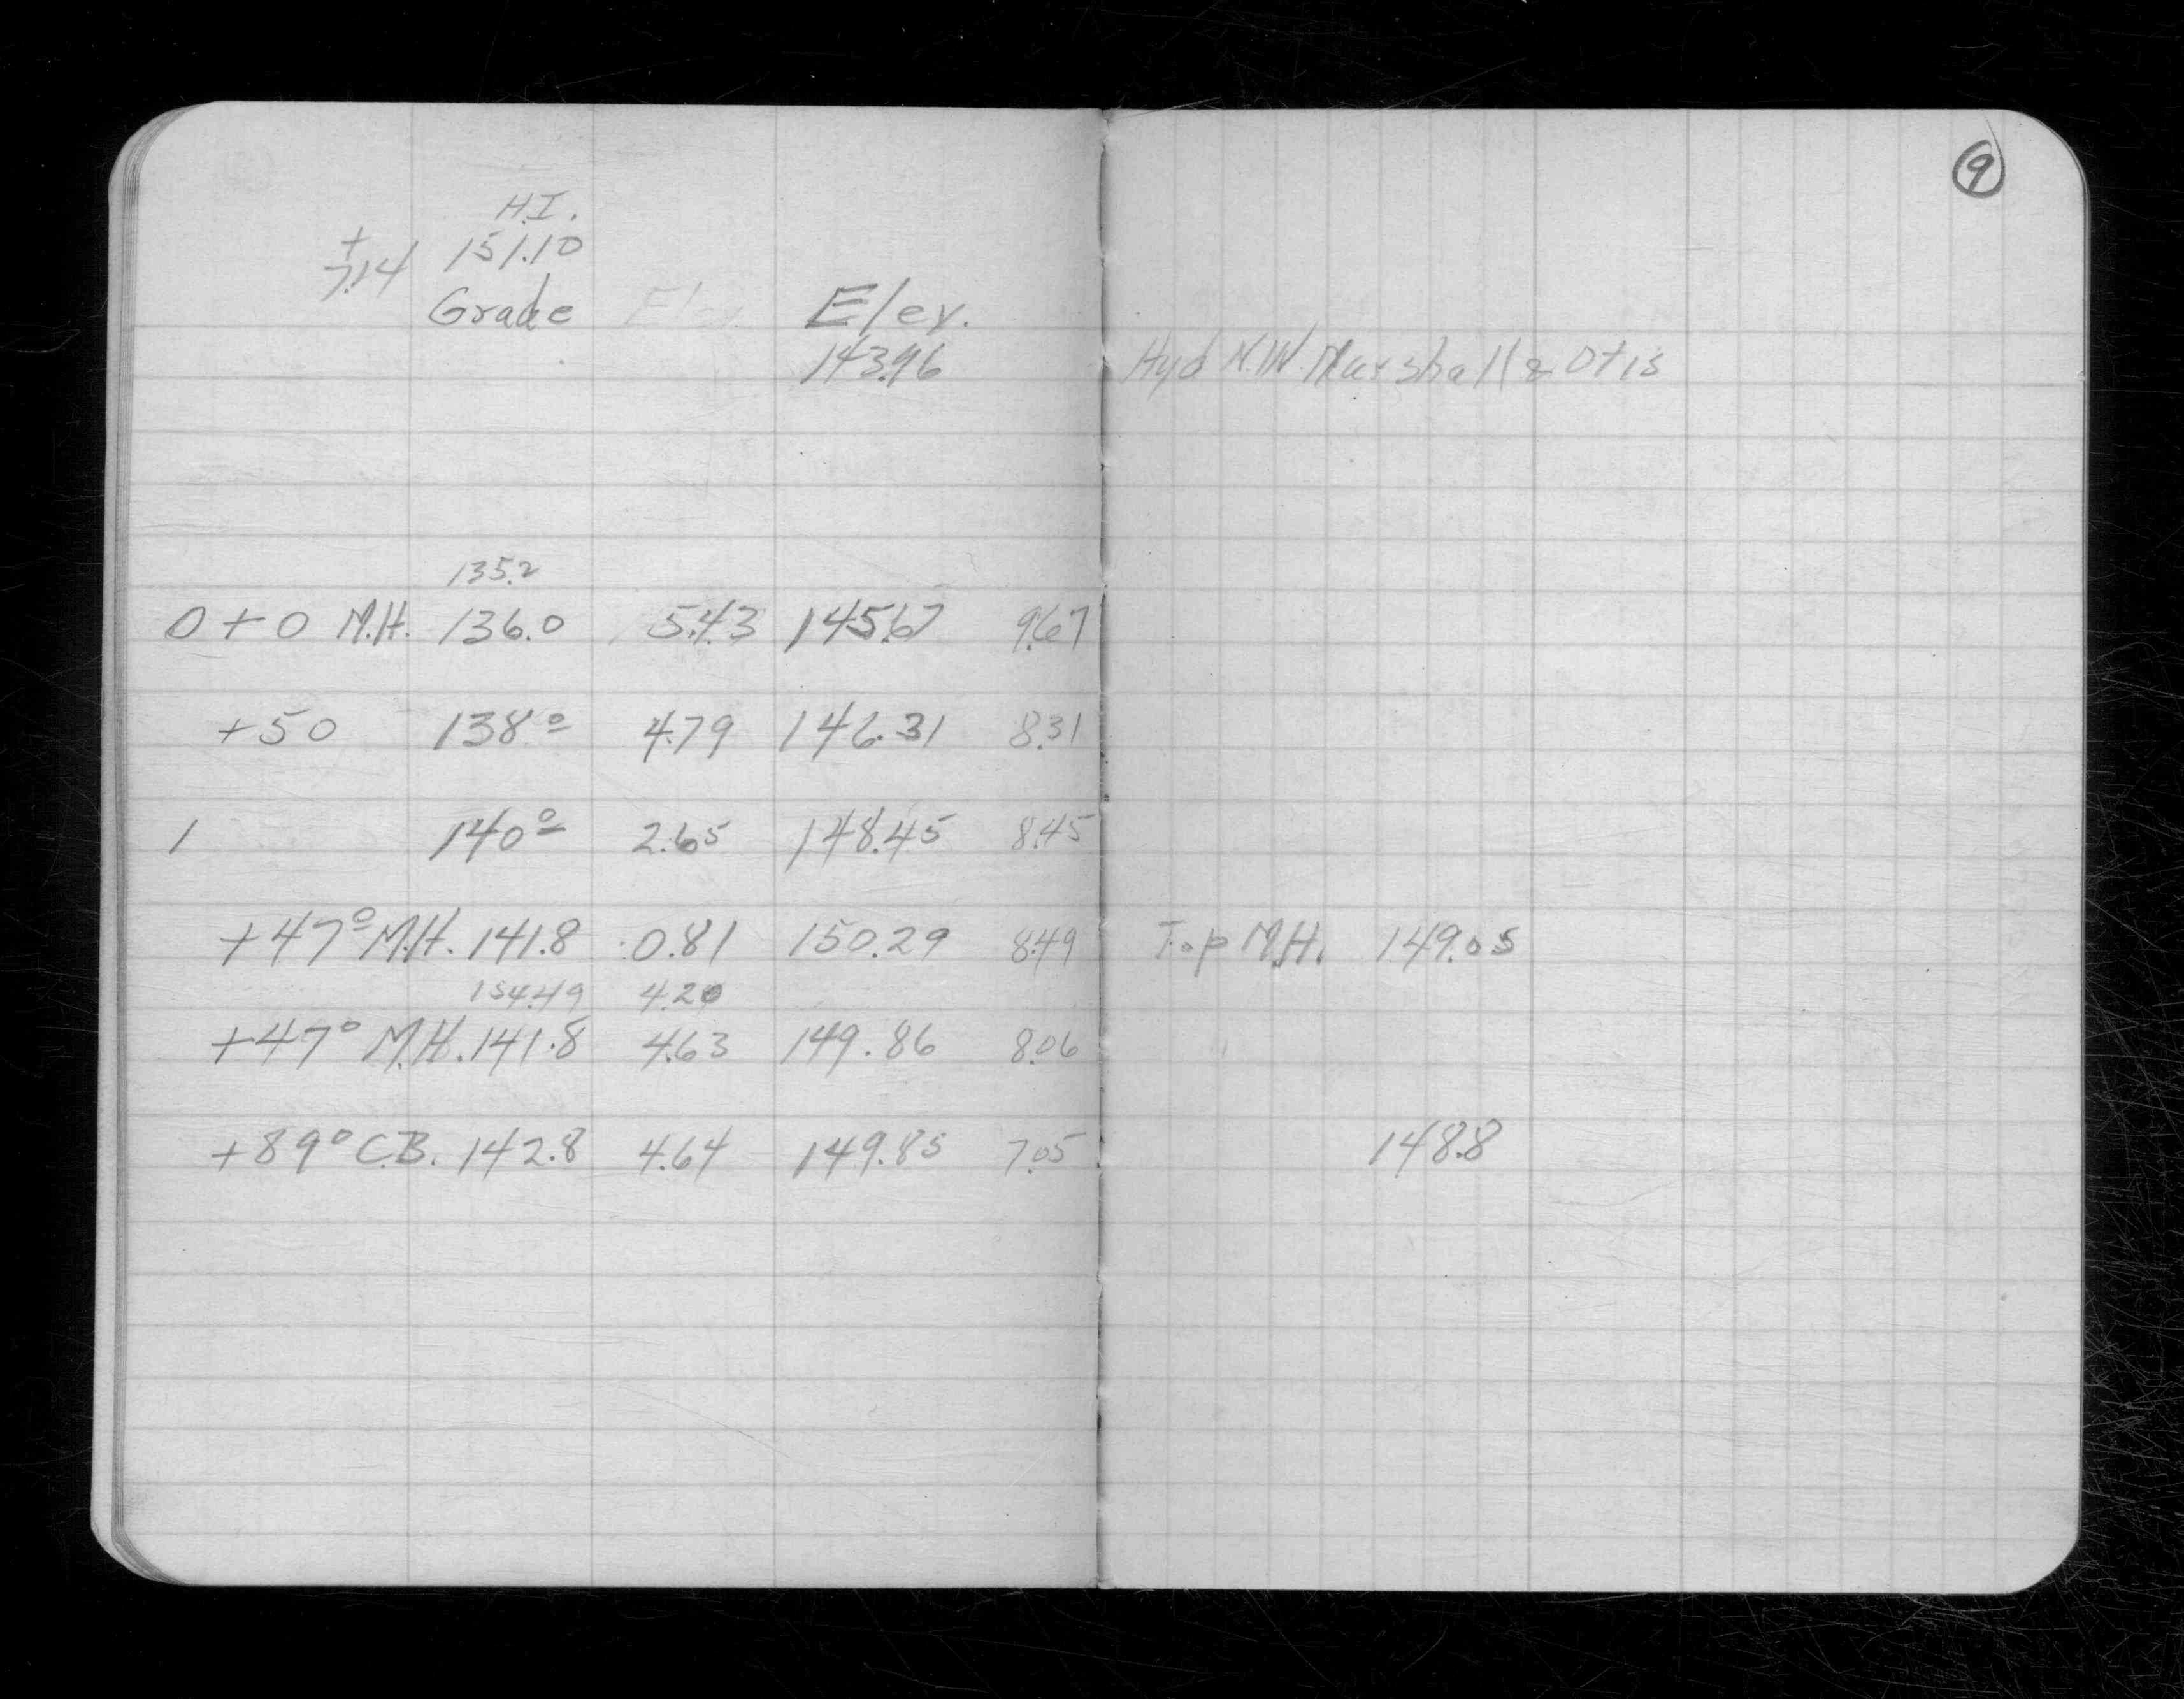 9
H.I.
+ 151.10
7.14
Grade Elev. Elev.
143.96 Hyd N.W. Marshall & Otis
135.2
0+0 M.H. 136.0 5.43 145.67 9.67
+50 138º 4.79 146.31 8.31
1 140º 2.65 148.45 8.45
+47º M.H. 141.8 0.81 150.29 8.49 Top M.H. 149.05
154.49 4.20
+47º M.H. 141.8 4.63 149.86 8.06
+89º C.B. 142.8 4.64 149.85 7.05 148.8